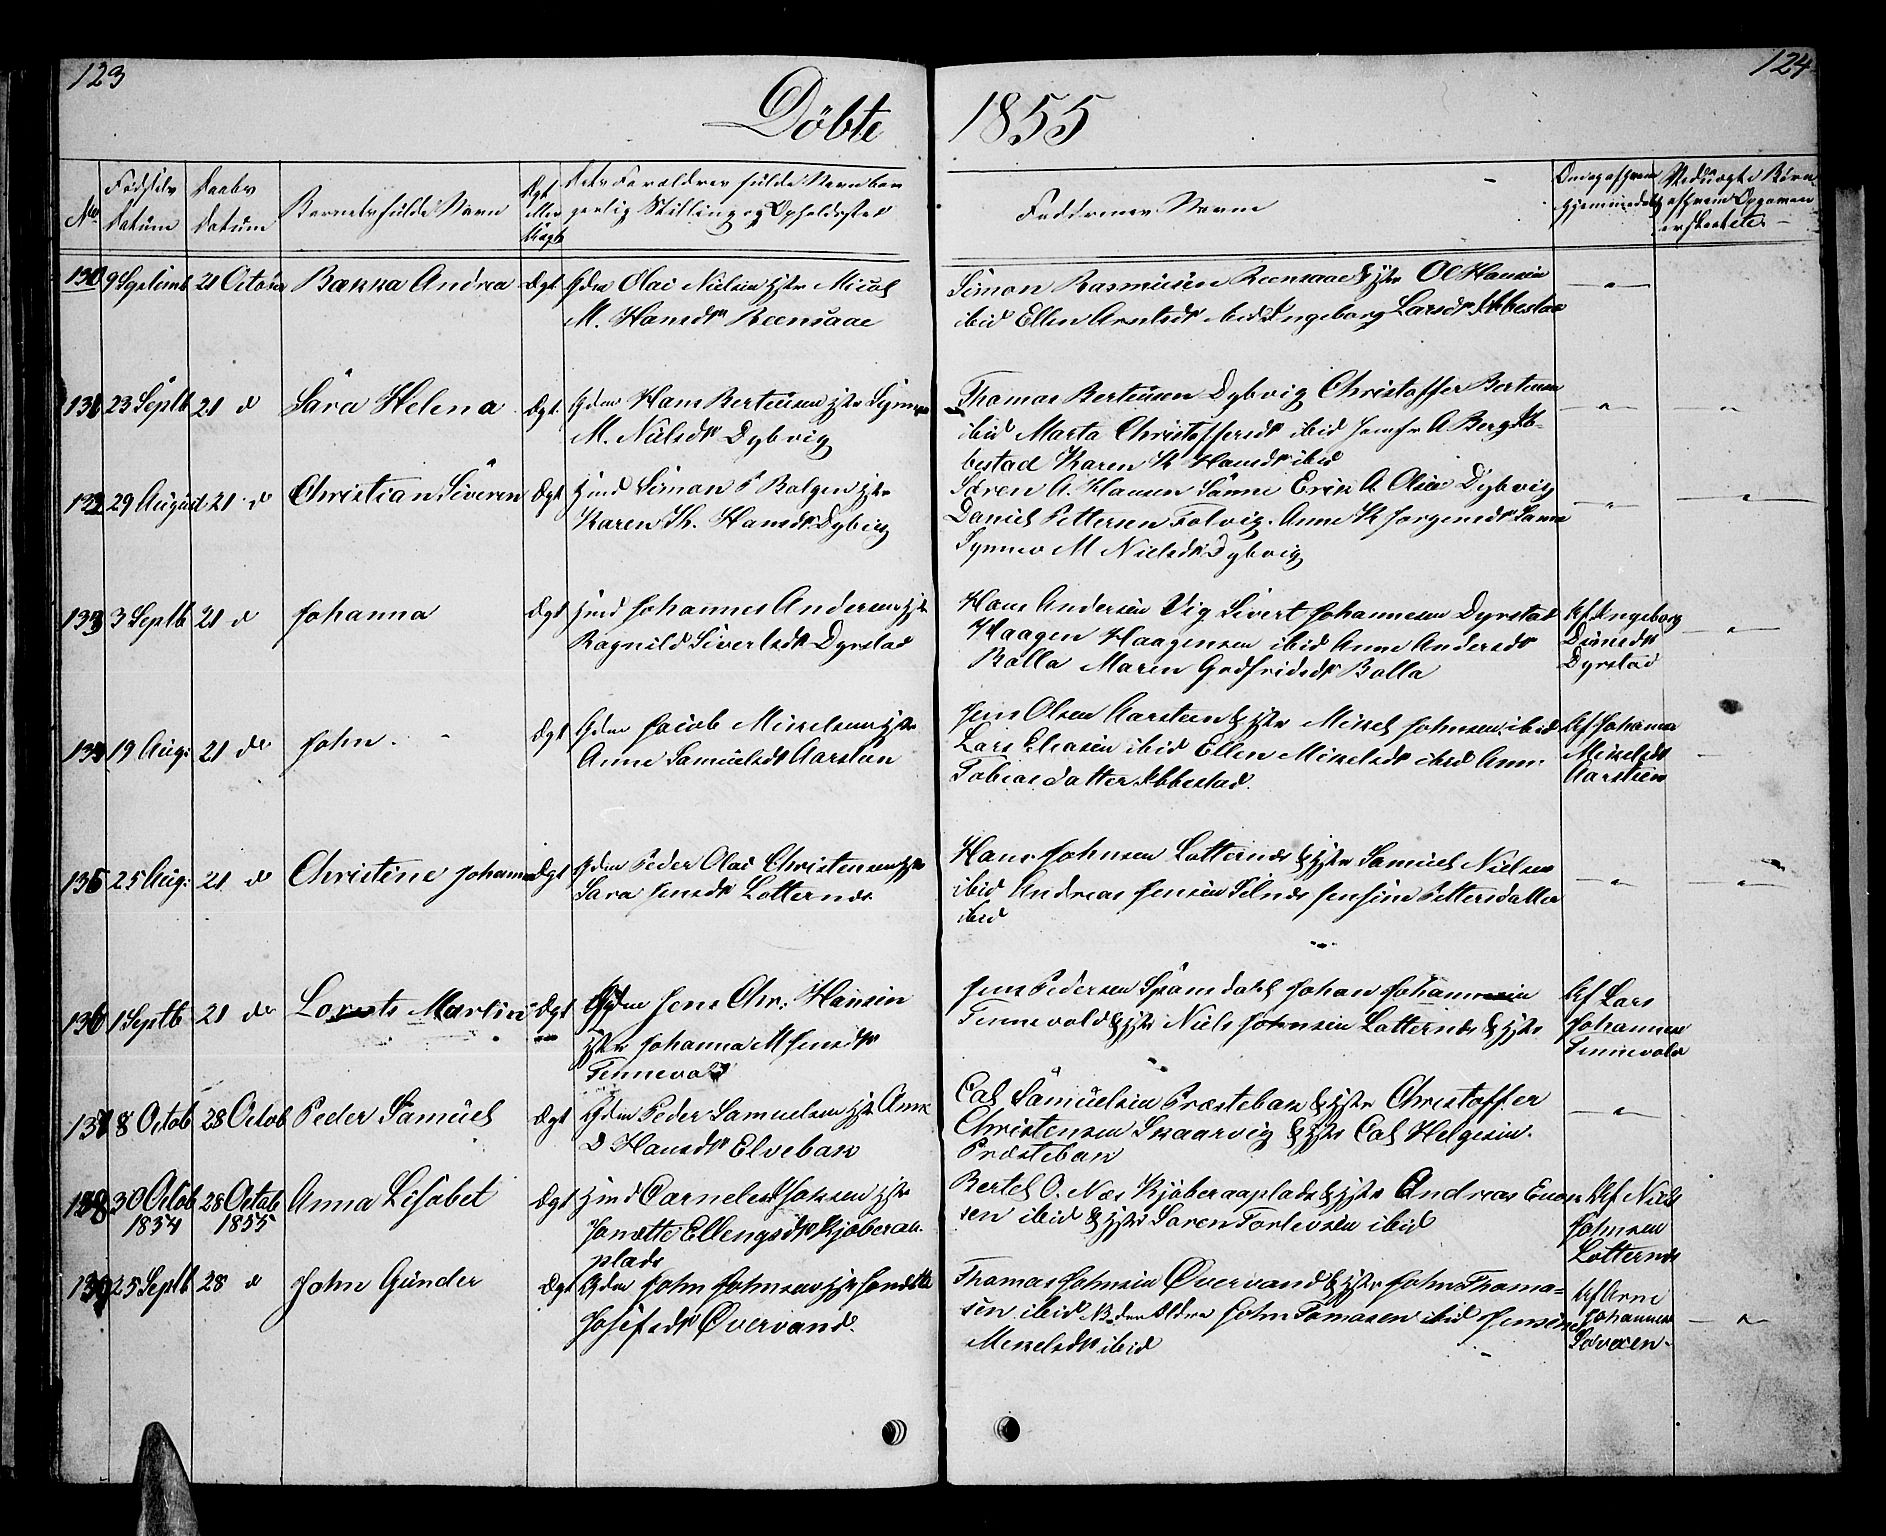 123
124
Döbte 1855
No
Födsels Datum
Daabs datum
Barnets fulde Navn
Dgt eller Uägte
Dets Foraldres fulde Navn bor
gerlig Stilling og Opholdssted
Faddrenes Navn
130 9 Septemb 21 Octobr Barra Andrea Dgt Gdm Olai Nielsen Hstr
M. Hansdr Reensaae
Simon Rasmusen Reensaae & Hstr Ol Hansen
ibid Ellen Arntsdr ibid Ingeborg Larsdr Ibbestad
131 23 Septb 21 d Sara Helena Dgt Gdm Hans Berteusen Hstr
M. Nielsdr Dybvig
Thomas Berteusen Dybvig Christoffer Berteusen
ibid Marta Christoffersdr ibid Jomfr A Berg Ib-
bestad Karen K Hansdr ibid
132 29 August 21 d Christian Siveren Dgt Hmd Simon P Bolgen Hstr
Karen K. Hansdr Dybvig
Sören A. Hansen Sänne Erik A Olsen Dybvig
Daniel Pettersen Folvig. Anne K Jorgensdr Sanne
Synnev M Nielsdr Dybvig
133 3 Septb 21 d Johanna Dgt Hmd Johannes Andersen Hstr
Ragnild Sivertsdr Dyrstad
Hans Andersen Vig Sivert Johannesen Dyrstad
Haagen Haagensen ibid Anne Andersdr
Rolla Maren Godfridsdr Rolla
Af Ingeborg
Dyrstad
134 19 Aug: 21 de John. Dgt Gdm Jacob Mikelsen Hstr
Anne Samuelsdr Aarsten
Jens Olsen Aarsteen & Hstr Mikel Johnsen ibid
Lars Eliasen ibid Ellen Mikelsdr ibid Anne
Tobiasdatter Ibbestad.
Af Johanna
Mikelsdr
Aarsteen
135 25 Aug: 21 d Christine Johanna Dgt Gdm Peder Olai Christensen Hstr
Sara Jensdr Lotternes
Hans Johnsen Lotternes & Hstr Samuel Nielsen
ibid Andreas Jensen Selnes Jensine Pettersdatter
ibid
136 1 Septb 21 de Lorents Martin Dgt Gdm Jens Chr: Hansen
Hstr Johanna M Jensdr
Tennevold
Jens Pedersen Spansdahl Johan Johannesen
Tennevold & Hstr Niels Johnsen Lotternes & Hstr
Af Lars
Johannesen
Tennevold
137 8 Octob 28 Octob Peder Samuel Dgt Gdm Peder Samuelsen Hstr Anne
D Hansdr Elvebak
Cal Samuelsen Præstebak & Hstr Christoffer
Christensen Skaarvig & Hstr Cal Helgesen.
Præstebak
138 30 Octob 28 Octob Anna Lisabet Dgt Hmd Carneles Hansen Hstr
1854 1855
Janette Ellengsdr Kjöberaa-
plads
Bertel O. Næs Kjöberaaplads & Hstr Andreas Enok-
sen ibid & Hstr Saren Torlevsen ibid
Af Niels
Johnsen
Lotternes
139 25 Septb 28 d John Günder Dgt Gdm John Johnsen Hstr
Josefsdr Övervand.
Thomas Johnsen Övervand & Hstr John Thoma-
sen ibid den Aldre John Tomasen ibid Jensine
Mikelsdr ibid
Af Arne
Johannes